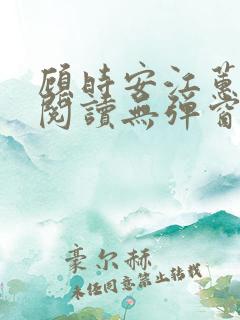 顾时安江蕙
閱讀無彈窗
豪尔赫
未经同意禁止转载